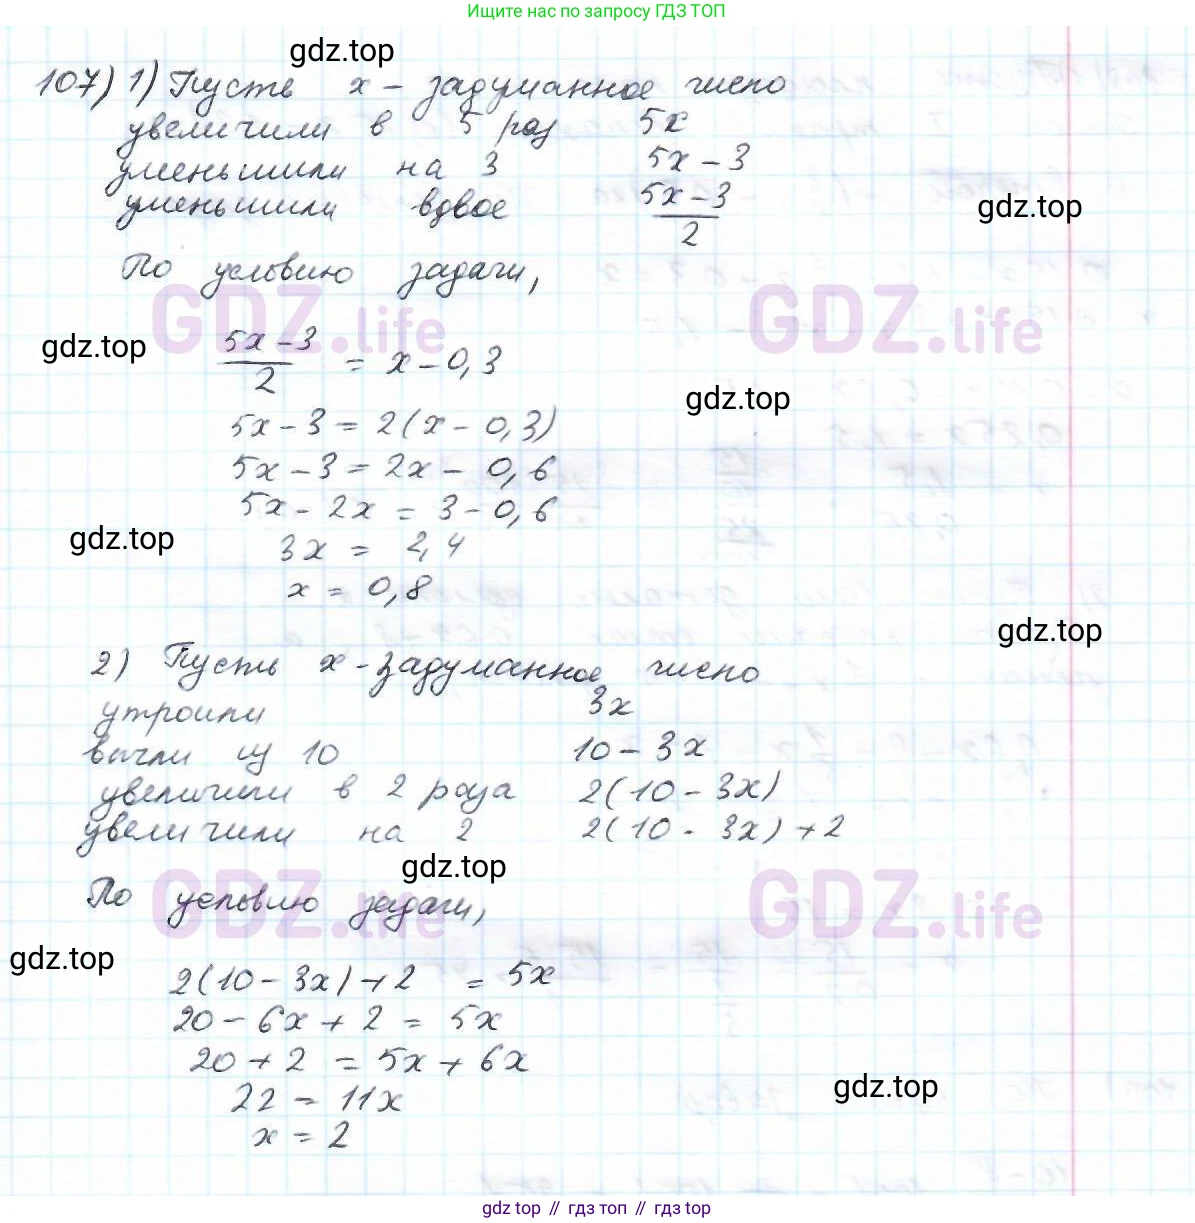 Ищите нас по запросу ГДЗ ТОП
gdz.top
107) 1) Пусть x – задуманное число
увеличили в 5 раз 5x
уменьшили на 3 5x – 3
уменьшили вдвое (5x – 3)/2
gdz.top
По условию задачи,
GDZ.life GDZ.life
gdz.top
(5x – 3)/2 = x – 0,3
gdz.top
5x – 3 = 2(x – 0,3)
5x – 3 = 2x – 0,6
5x – 2x = 3 – 0,6
gdz.top
3x = 2,4
x = 0,8
gdz.top
2) Пусть x – задуманное число
утроили 3x
вычли из 10 10 – 3x
увеличили в 2 раза 2(10 – 3x)
увеличили на 2 2(10 – 3x) + 2
gdz.top
По условию задачи,
GDZ.life GDZ.life
gdz.top
2(10 – 3x) + 2 = 5x
20 – 6x + 2 = 5x
20 + 2 = 5x + 6x
gdz.top
22 = 11x
x = 2
gdz.top // гдз топ // gdz.top